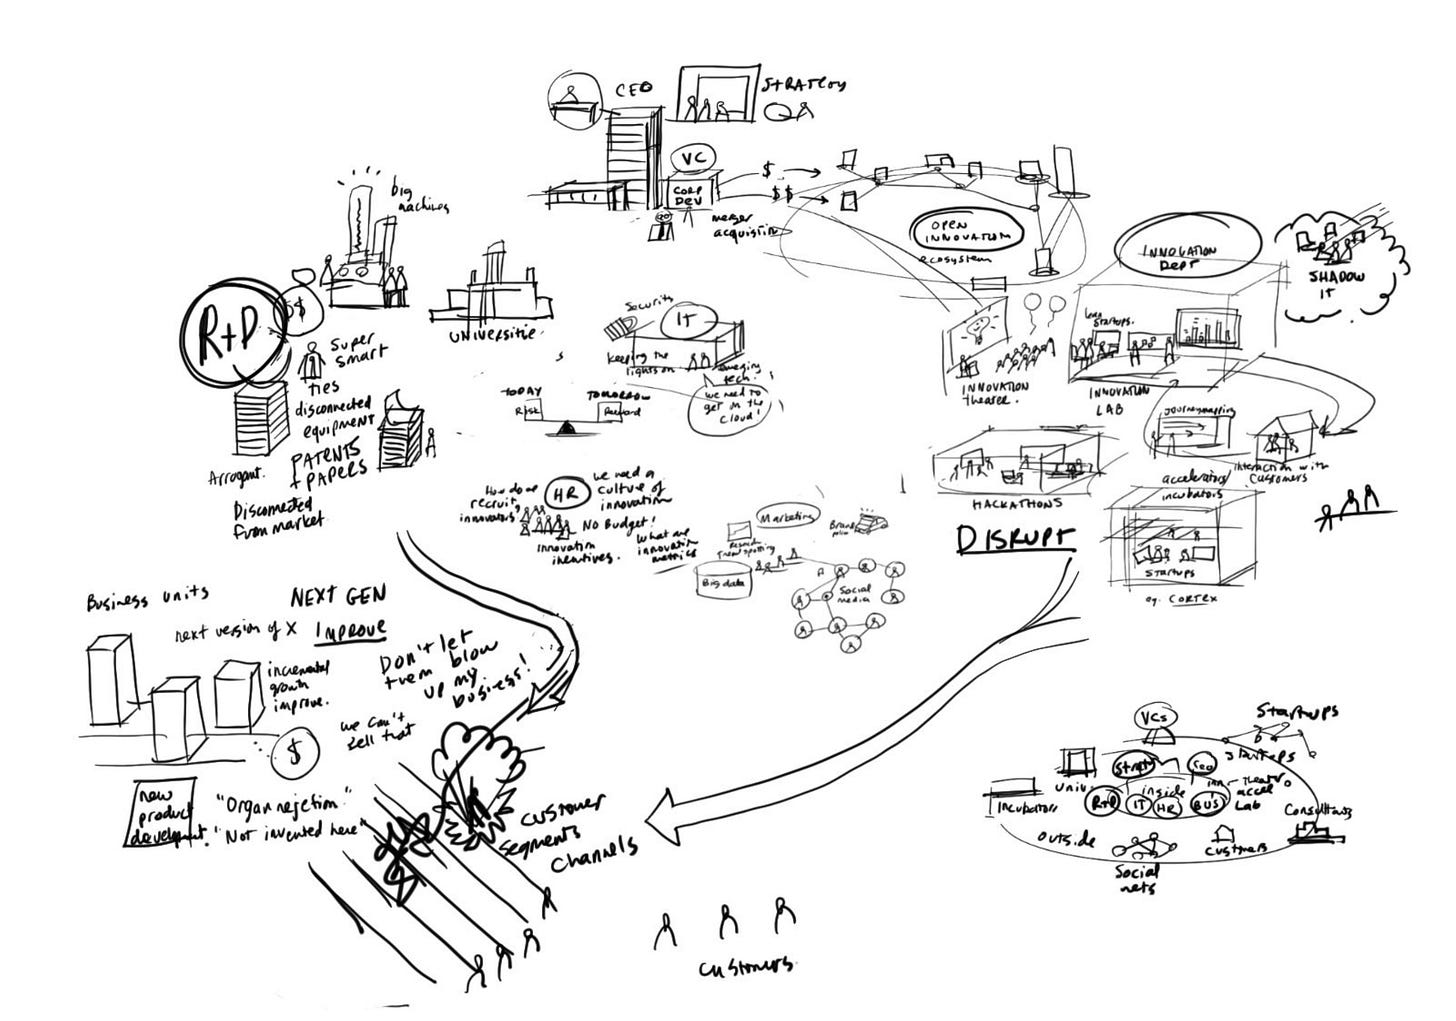 CEO
STRATEGY
VC
CORP
DEV
$
$$
merger
acquisition
OPEN
INNOVATION
ecosystem
INNOVATION
DEPT
SHADOW
IT
big
machines
R+D
$$
SUPER
SMART
TIES
disconnected
equipment
PATENTS
+ PAPERS
Arrogant.
Disconnected
from market
UNIVERSITIE.
Security
IT
keeping the
lights on
emerging
tech.
we need to
get on the
cloud!
TODAY
Risk
TOMORROW
Reward
lean
startups.
INNOVATION
theater.
INNOVATION
LAB
JOURNEYmapping
interaction with
customers
HACKATHONS
accelerators/
incubators
STARTUPS
eg. CORTEX
DISRUPT
How do we
recruit
innovators
HR
we need a
culture of
innovation
NO BUDGET!
innovation
incentives.
What are
innovation
metrics
Marketing
Brand
Research
Trend spotting
Big data
Social
media
Business units
NEXT GEN
next version of X
IMPROVE
incremental
growth
improve.
$
Don't let
them blow
up my
business!
we can't
sell that
new
product
developmt.
"Organ rejection"
"Not invented here"
customer
segments
channels
customers
VCs
Startups
startups
Univ.
Strat
CEO
Incubators
R+D
inside
IT
HR
BUS
inn. theatr
accel
Lab
Consultants
outside
Social
nets
customers